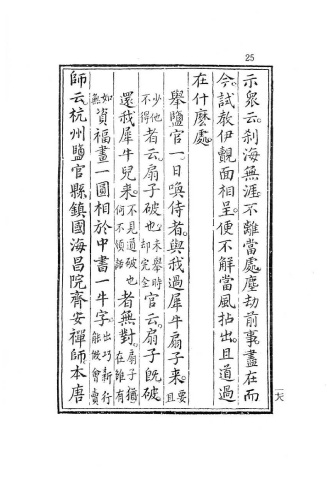 25
示眾云。刹海無涯不離當處塵劫前事盡在而
今。試教伊覿面相呈。便不解當風拈出。且道過
在什麼處。
舉鹽官一日喚侍者。與我過犀牛扇子來。且要
少他不得者云。扇子破也。未舉時却完全官云。扇子既破
還我犀牛兒來。不見道破也何不領話者無對。扇子猶在雖有
如無資福畫一圓相於中書一牛字。出巧新行能做會賣
師云杭州鹽官縣鎮國海昌院齊安禪師本唐